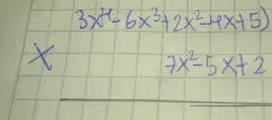 3x⁴-6x³+2x²-4x+5)
× 7x²-5x+2